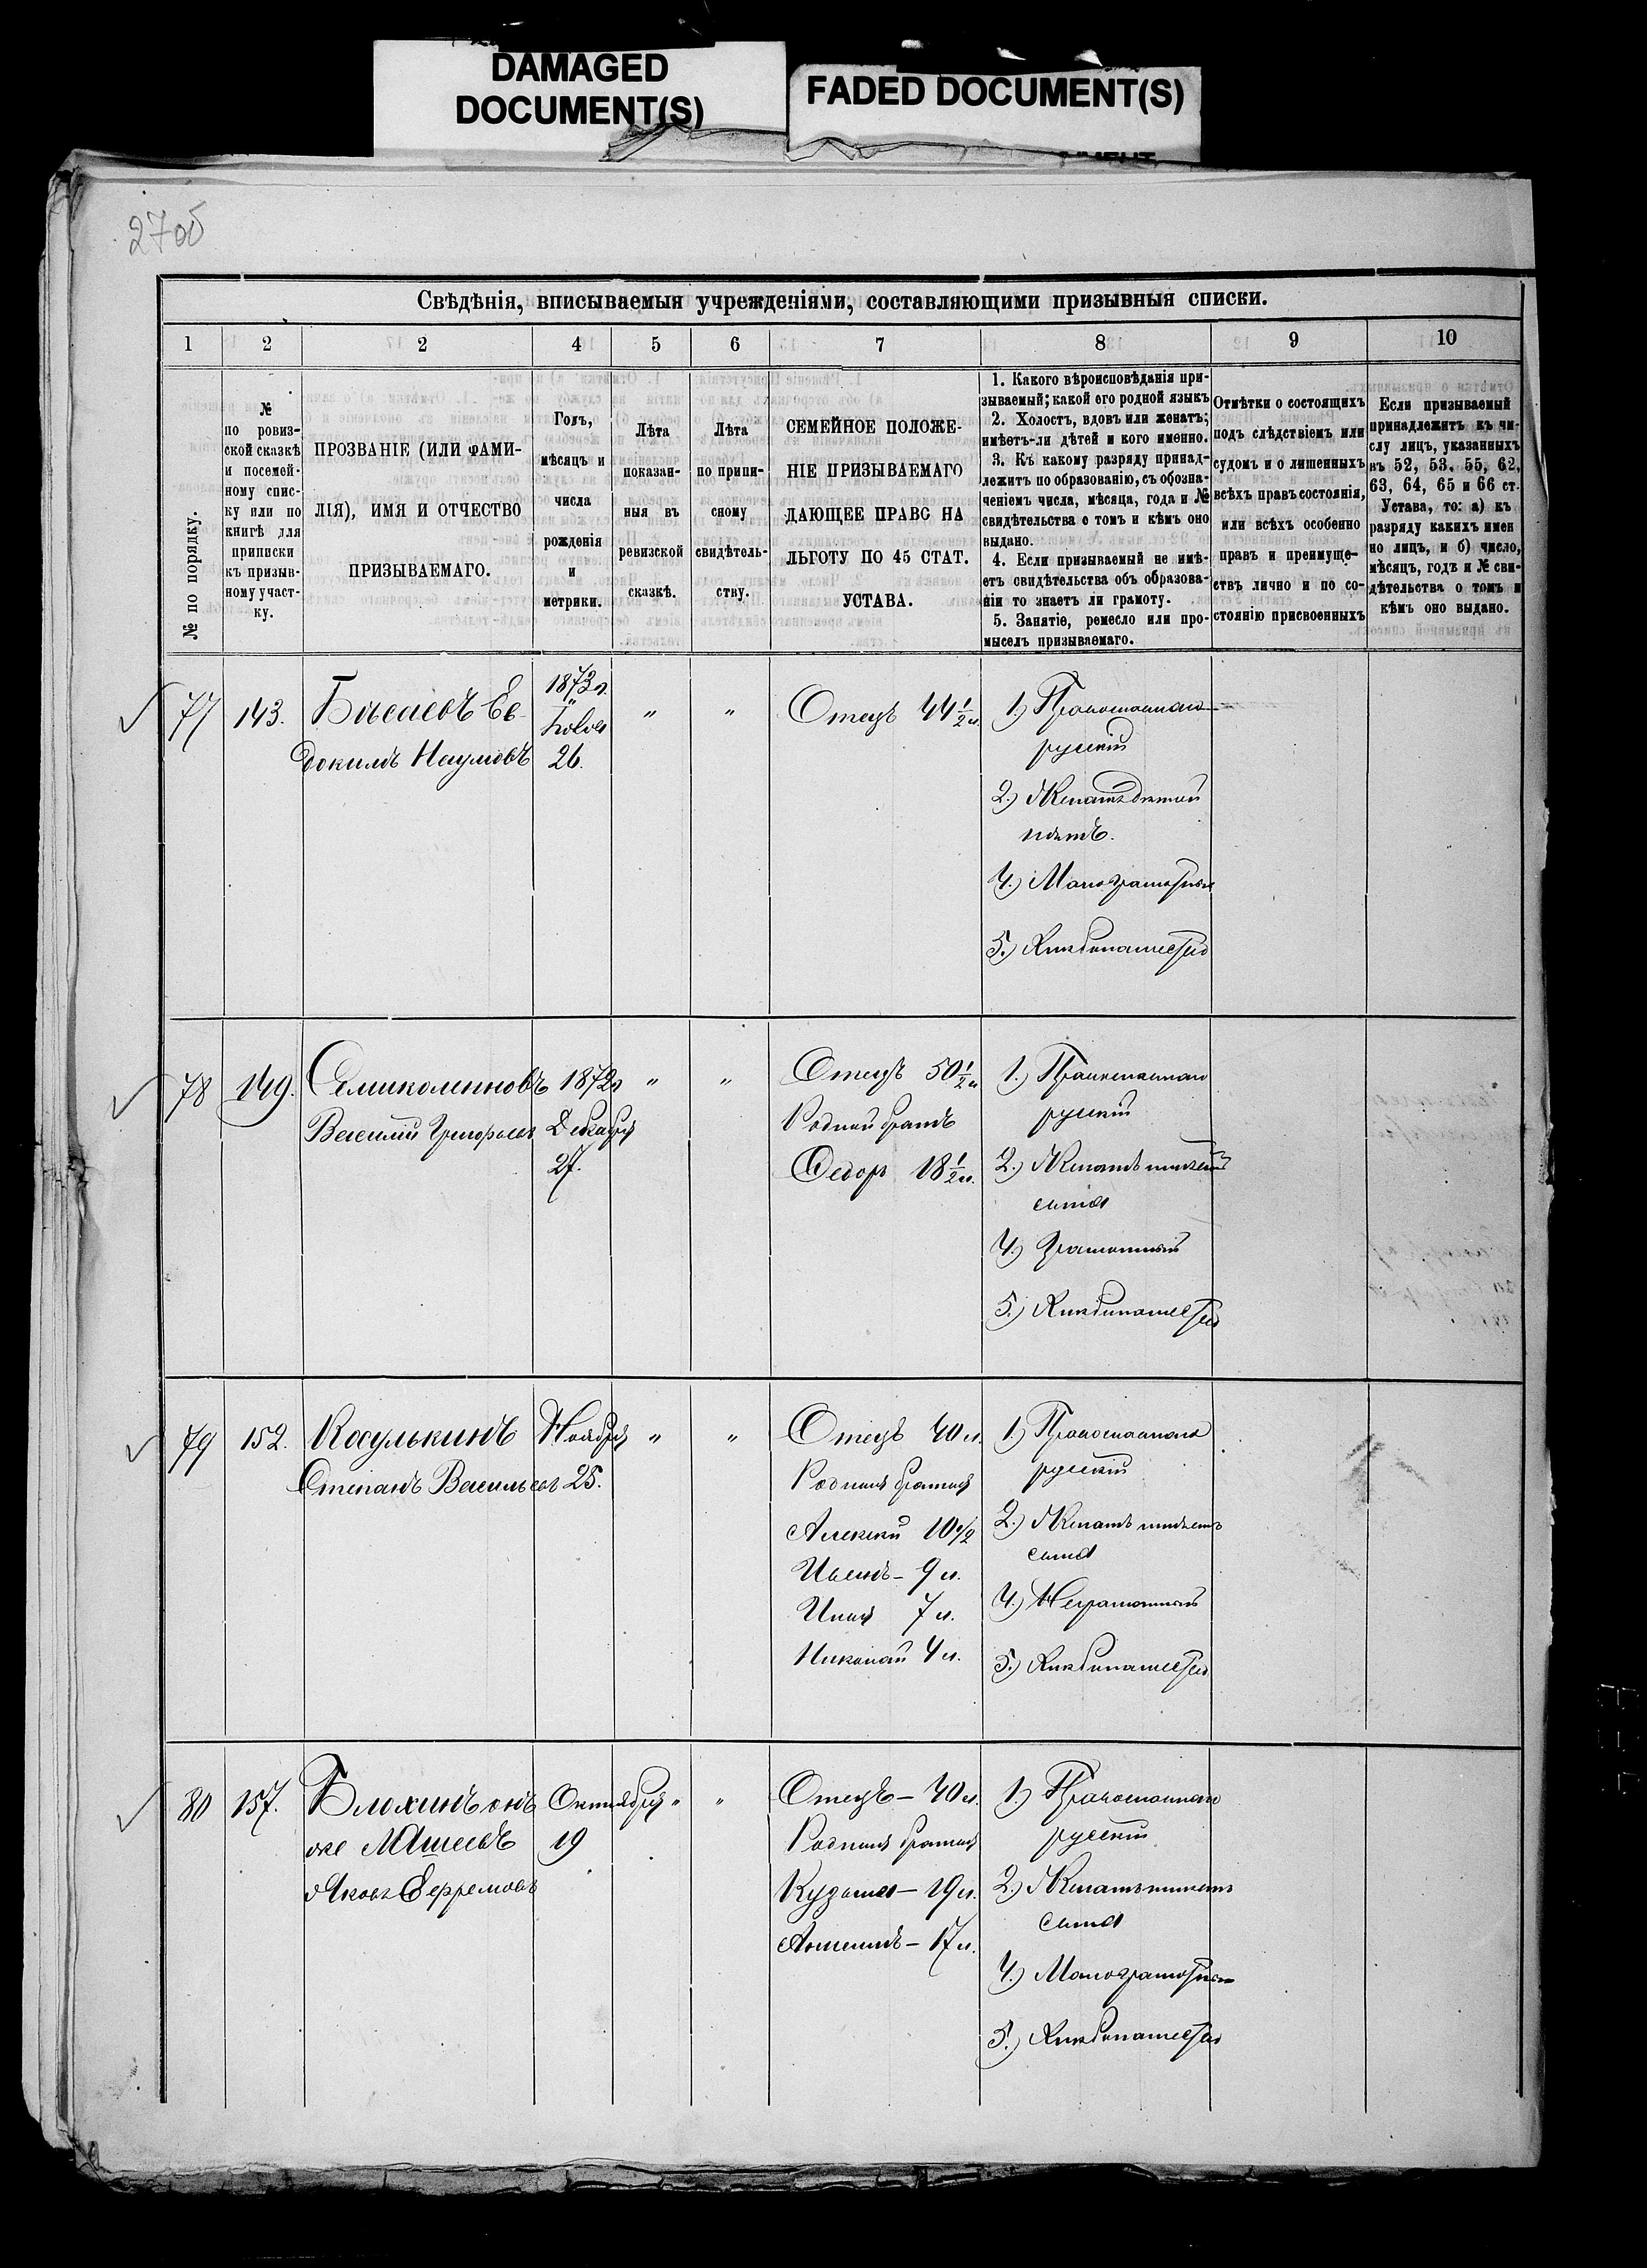 DAMAGED
DOCUMENT(S)
FADED DOCUMENT(S)
270б
Свѣдѣнія, вписываемыя учрежденіями, составляющими призывныя списки.
1 2 2 4 5 6 7 8 9 10
№ по порядку.
№
по ровиз-
ской сказкѣ
и посемей-
ному спис-
ку или по
книгѣ для
приписки
къ призыв-
ному участ-
ку.
ПРОЗВАНІЕ (ИЛИ ФАМИ-
ЛІЯ), ИМЯ И ОТЧЕСТВО
ПРИЗЫВАЕМАГО.
Годъ,
мѣсяцъ и
числа
рожденія
и
метрики.
Лѣта
показан-
ныя въ
ревизской
сказкѣ.
Лѣта
по припи-
сному
свидѣтель-
ству.
СЕМЕЙНОЕ ПОЛОЖЕ-
НІЕ ПРИЗЫВАЕМАГО
ДАЮЩЕЕ ПРАВО НА
ЛЬГОТУ ПО 45 СТАТ.
УСТАВА.
1. Какого вѣроисповѣданія при-
зываемый; какой его родной языкъ
2. Холостъ, вдовъ или женатъ;
имѣетъ-ли дѣтей и кого именно.
3. Къ какому разряду принад-
лежитъ по образованію, съ обозна-
ченіемъ числа, мѣсяца, года и №
свидѣтельства о томъ и кѣмъ оно
выдано.
4. Если призываемый не имѣ-
етъ свидѣтельства объ образова-
ніи то знаетъ ли грамоту.
5. Занятіе, ремесло или про-
мыселъ призываемаго.
Отмѣтки о состоящихъ
подъ слѣдствіемъ или
судомъ и о лишенныхъ
всѣхъ правъ состоянія,
или всѣхъ особенно
правъ и преимуще-
ствъ лично и по со-
стоянію присвоенныхъ
Если призываемый
принадлежитъ къ чи-
слу лицъ, указанныхъ
въ 52, 53, 55, 62,
63, 64, 65 и 66 ст.
Устава, то: а) къ
разряду какихъ имен
но лицъ, и б) число,
мѣсяцъ, годъ и № сви-
дѣтельства о томъ и
кѣмъ оно выдано.
77 143. Ев-
докимъ Наумовъ
1873г.
26.
" "
Отецъ 44 1/2 л.
1.) Православнаго
русскій
2.) Женатъ дѣтей
нѣтъ.
4.) Малограмотный
5.) Хлѣбопашество
78 149. Семиколенновъ 1872г " "
Василій Григорьевъ Декабря
27.
Отецъ 50 1/2 л
Родной братъ
Федоръ 18 1/2 л.
1.) Православнаго
русскій
2.) Женатъ имѣетъ
сына
4.) Грамотный
5.) Хлѣбопашество
79 152. Косулькинъ Ноября " "
Степанъ Васильевъ 25.
Отецъ 40 л.
Родныя братья
Алексѣй 10 1/2
Иванъ - 9 л.
Илья 7 л.
Николай 4 л.
1.) Православнаго
русскій
2.) Женатъ имѣетъ
сына
4.) Неграмотный
5.) Хлѣбопашество
80 157. Блохинъ онъ Октября " "
же 19
Яковъ Ефремовъ
Отецъ - 40 л.
Родныя братья
Кузьма - 19 л.
17 л.
1.) Православнаго
русскій
2.) Женатъ имѣетъ
сына
4.) Малограмотный
5.) Хлѣбопашество